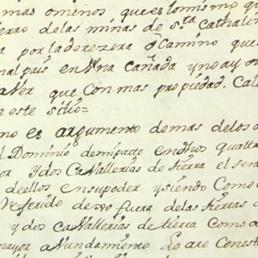 mas omenos que es lo mismo que
erro de las minas de S.ta Cathalin
a por la derezera o Camino que
nal pais en Vna Cañada y no ay o
aver que con mas propiedad. Cal
n este sitio=
no es argumento demas de los a
l Dominio de mi parte en dhos quattr
or Y dos Cavallerias de tierra el ser a
de ellos en su poder y siendo Como e
Referido de vo fuera de las tierras d
y dos caVallerias de tierra Como a
mayor a Vundamiento Lo are Const